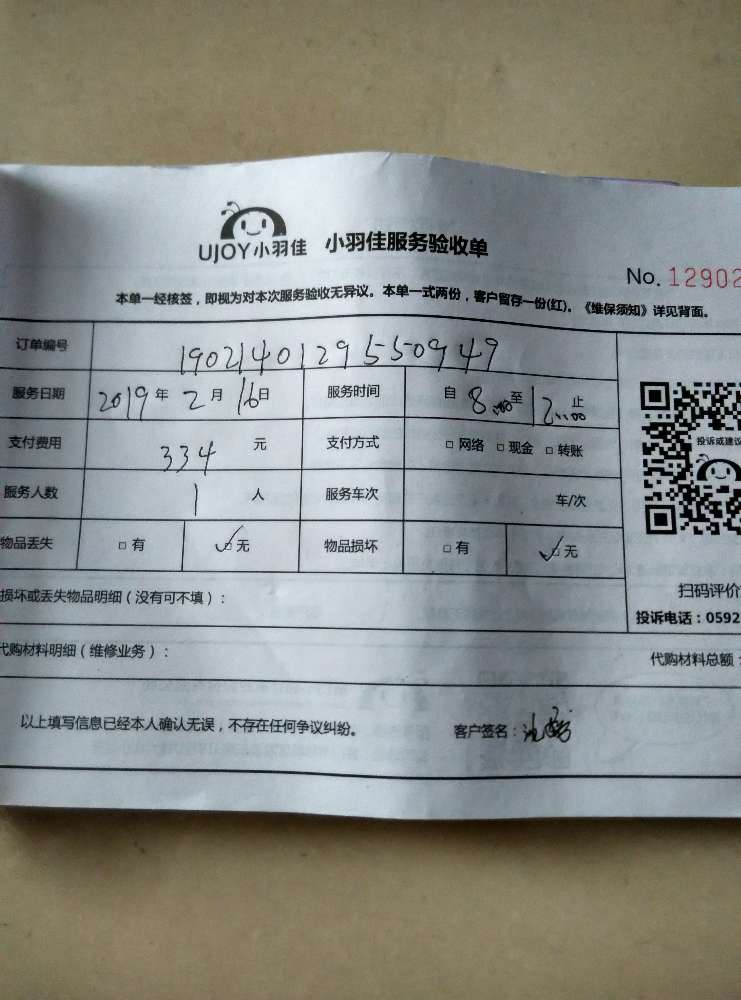 UJOY小羽佳 小羽佳服务验收单
No. 12902
本单一经核签，即视为对本次服务验收无异议。本单一式两份，客户留存一份(红)。《维保须知》详见背面。
订单编号 1902140129550949
服务日期 2019年 2月 16日 服务时间 自 8:00至 12:00止
支付费用 334 元 支付方式 □ 网络 □ 现金 □ 转账
服务人数 1 人 服务车次 车/次
物品丢失 □ 有 ✓□ 无 物品损坏 □ 有 ✓□ 无
投诉或建议
扫码评价
投诉电话：0592
损坏或丢失物品明细（没有可不填）：
代购材料明细（维修业务）：
代购材料总额：
以上填写信息已经本人确认无误，不存在任何争议纠纷。 客户签名：